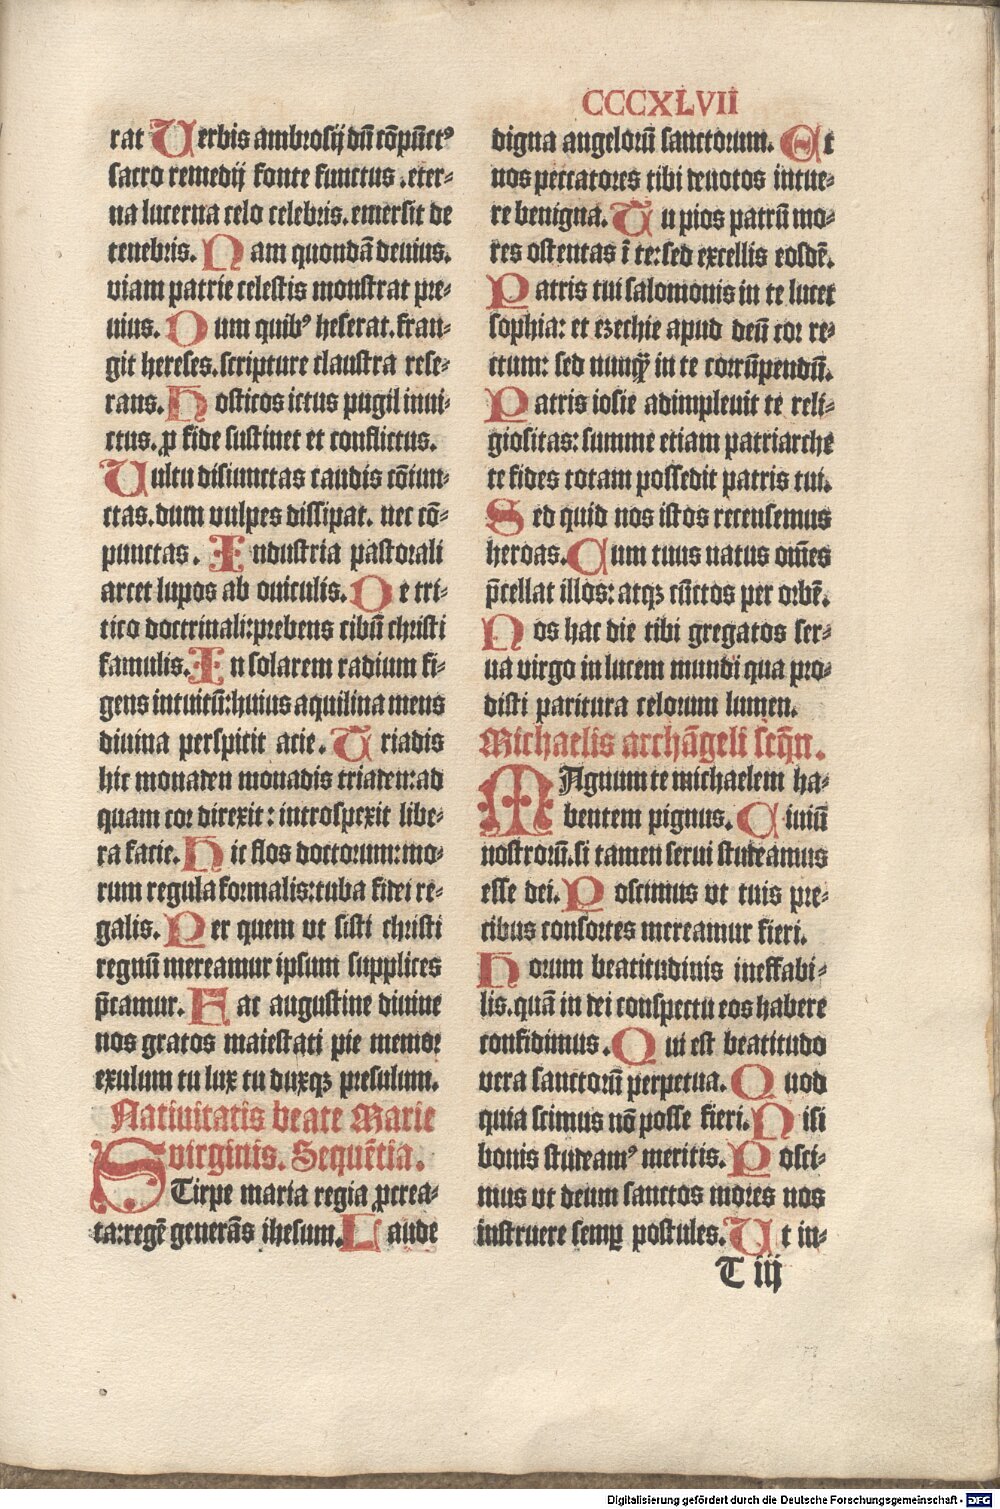 CCCXLVII
rat Verbis ambrosij dū cōpūct⁹
sacro remedij fonte functus .eter⸗
na lucerna celo celebris. emersit de
tenebris. Nam quondā deuius.
viam patrie celestis monstrat pre⸗
uius. Dum quib⁹ heserat. fran⸗
git hereses. scripture claustra rese⸗
rans. Hosticos ictus pugil inui⸗
ctus. ꝓ fide sustinet et conflictus.
Vultu disiunctas caudis cōiun⸗
ctas. dum vulpes dissipat. nec cō⸗
punctas. Industria pastorali
arcet lupos ab ouiculis. De tri⸗
tico doctrinali: prebens cibū christi
famulis. In solarem radium fi⸗
gens intuitū: huius aquilina mens
diuina perspicit acie. Triadis
hic monaden monadis triaden: ad
quam cor direxit: introspexit libe⸗
ra facie. Hic flos doctorum: mo⸗
rum regula formalis: tuba fidei re⸗
galis. Per quem vt sisti christi
regnū mereamur ipsum supplices
p̄camur. Fac augustine diuine
nos gratos maiestati pie memor
exulum tu lux tu duxqꝫ presulum.
Natiuitatis beate Marie
virginis. Sequētia.
STirpe maria regia ꝓcrea⸗
ta: regē generās ihesum. Laude
digna angelorū sanctorum. Et
nos peccatores tibi deuotos intue⸗
re benigna. Tu pios patrū mo⸗
res ostentas ī te: sed excellis eosdē.
Patris tui salomonis in te lucet
sophia: et ezechie apud deū cor re⸗
ctum: sed nunq̄ in te corrūpendū.
Patris iosie adimpleuit te reli⸗
giositas: summe etiam patriarche
te fides totam possedit patris tui.
Sed quid nos istos recensemus
heroas. Cum tuus natus om̄es
p̄cellat illos: atqꝫ cūctos per orbē.
Nos hac die tibi gregatos ser⸗
ua virgo in lucem mundi qua pro⸗
disti paritura celorum lumen.
Michaelis archāgeli seq̄n.
MAgnum te michaelem ha⸗
bentem pignus. Ciuiū
nostrorū. si tamen serui studeamus
esse dei. Poscimus vt tuis pre⸗
cibus consortes mereamur fieri.
Horum beatitudinis ineffabi⸗
lis. quā in dei conspectu eos habere
confidimus. Qui est beatitudo
vera sanctorū perpetua. Quod
quia scimus nō posse fieri. Nisi
bonis studeam⁹ meritis. Posci⸗
mus vt deum sanctos mores nos
instruere semꝑ postules. Vt in⸗
T iij
Digitalisierung gefördert durch die Deutsche Forschungsgemeinschaft - DFG